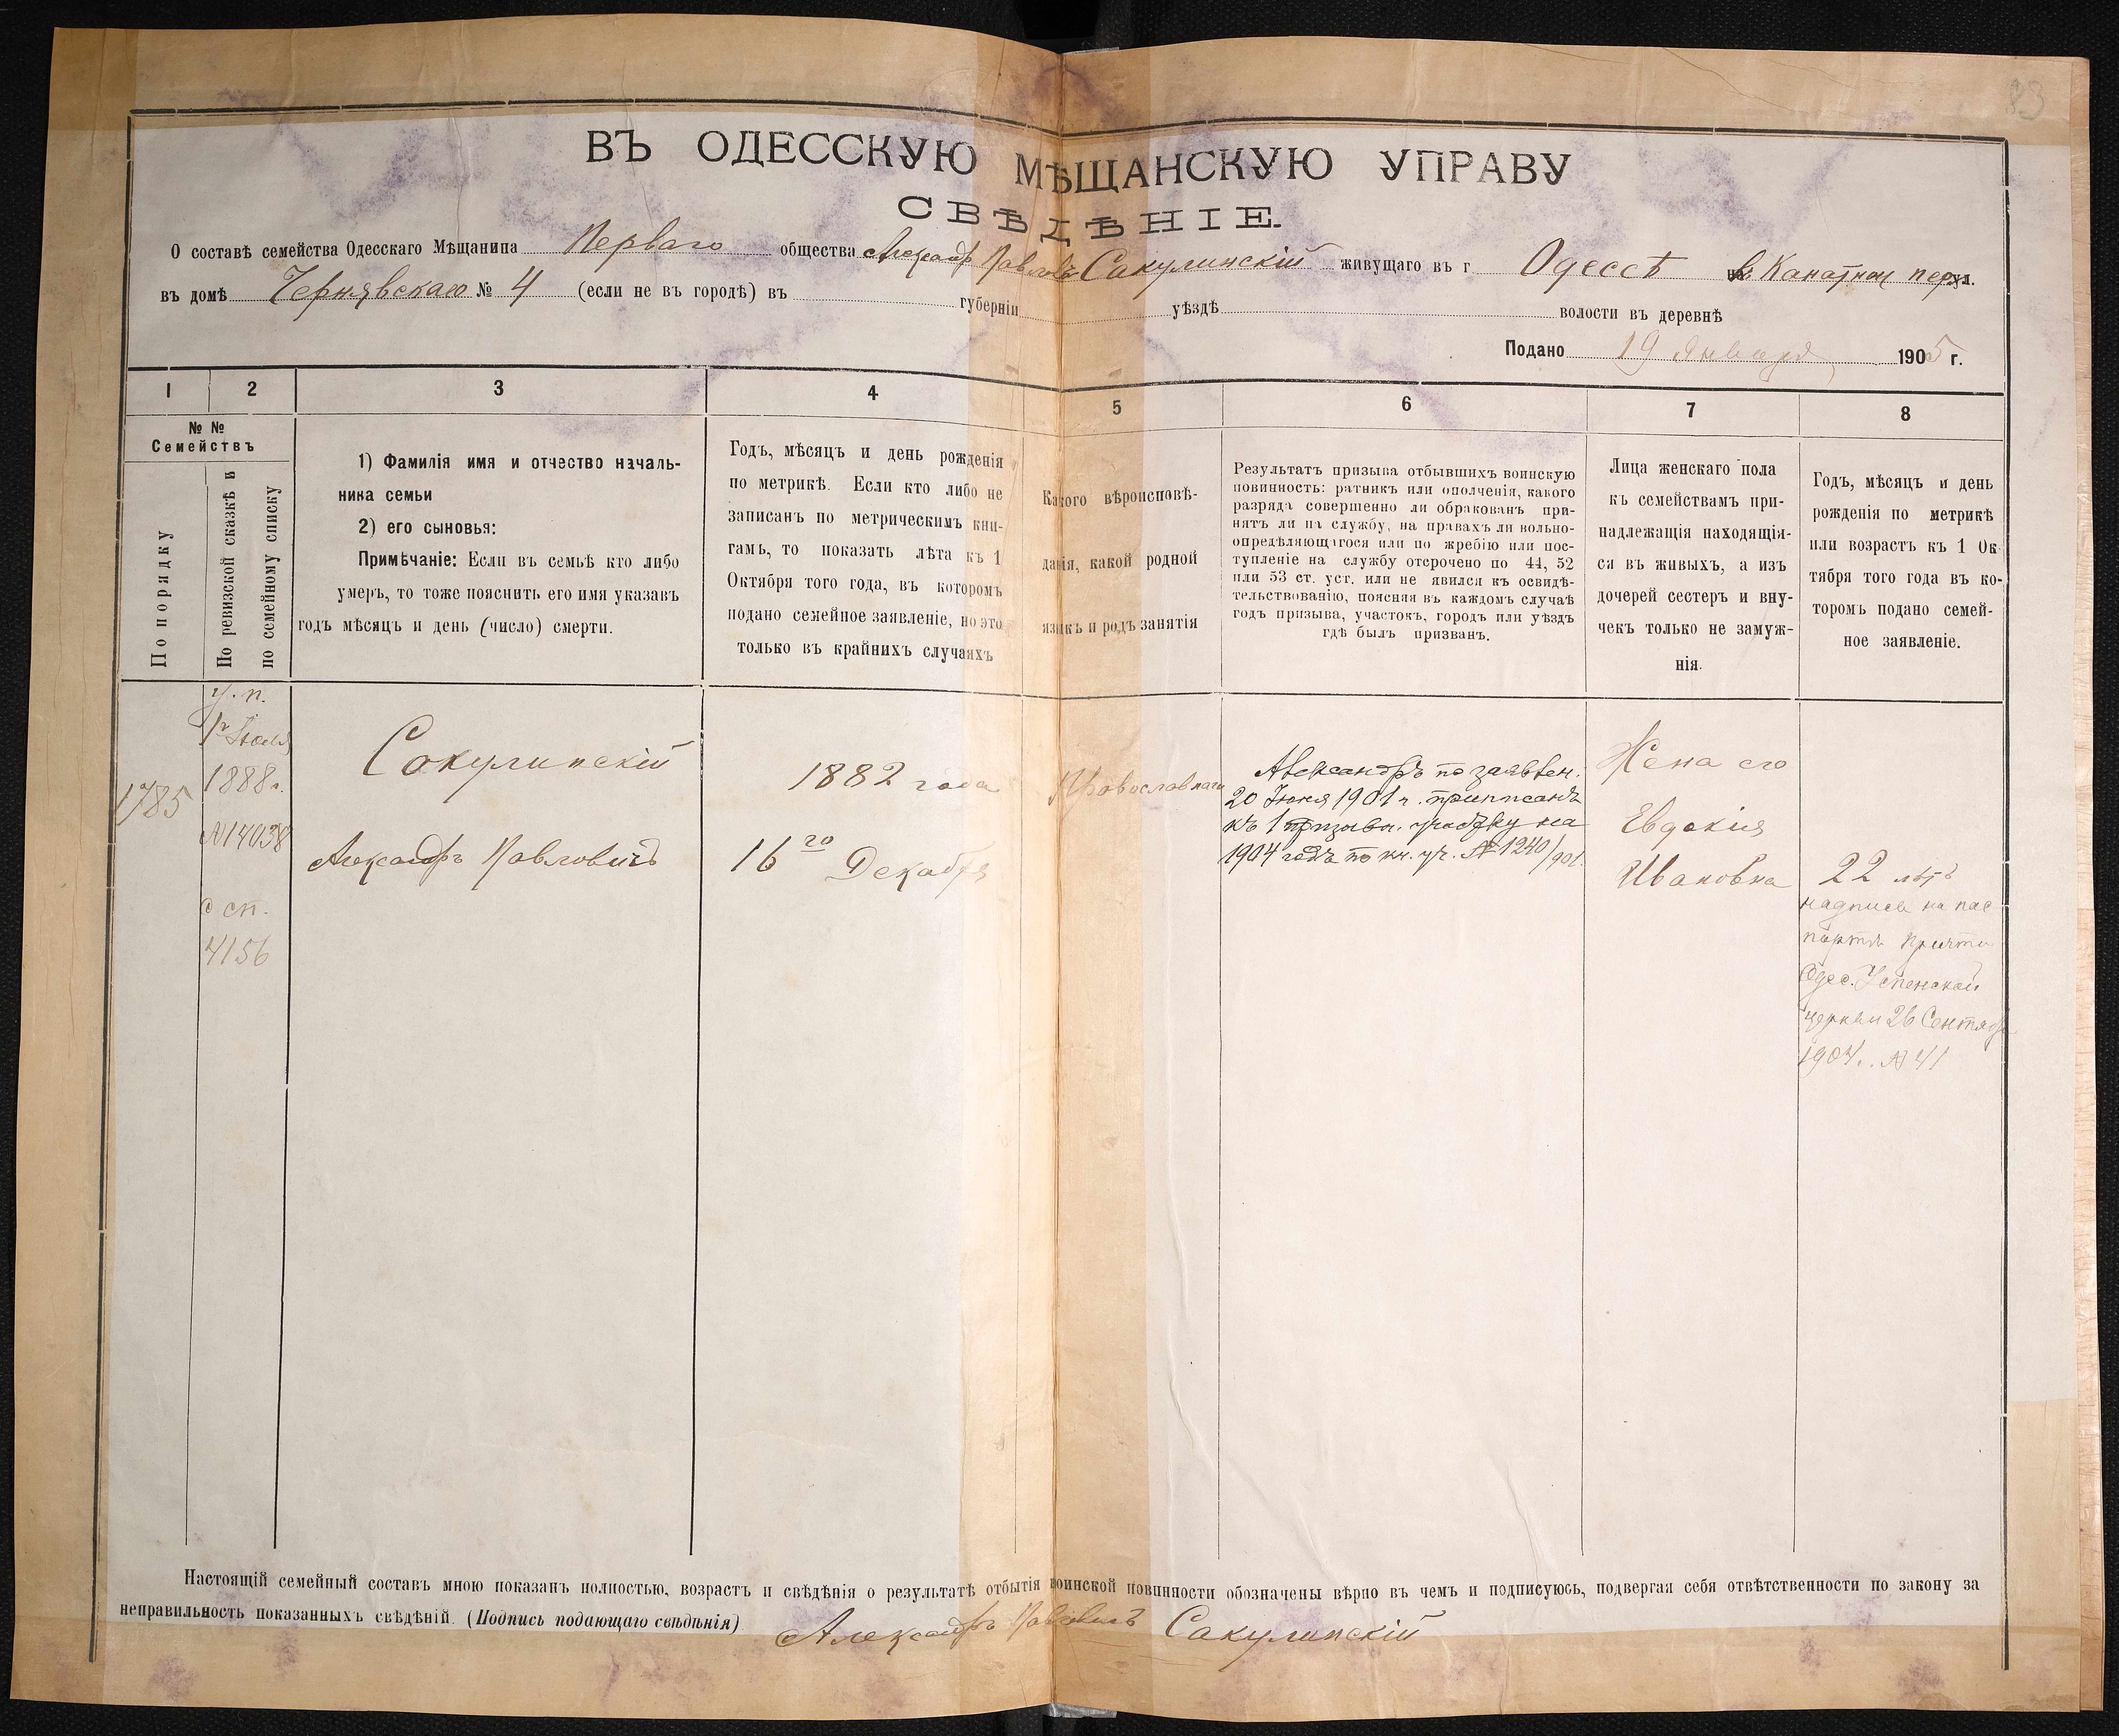 83
ВЪ ОДЕССКУЮ МѢЩАНСКУЮ УПРАВУ
СВѢДѢНІЕ.
О составѣ семейства Одесскаго Мѣщанина Перваго общества Александръ Павловъ Сакулинскій живущаго въ г Одессѣ в Канатном пер ул.
въ домѣ Чернявскаго № 4 (если не въ городѣ) въ губерніи уѣздѣ волости въ деревнѣ
Подано 19 Января 1905 г.
1 2 3 4 5 6 7 8
№ №
Семействъ
По порядку
По ревизской сказкѣ и
по семейному списку
1) Фамилія имя и отчество началь-
ника семьи
2) его сыновья:
Примѣчаніе: Если въ семьѣ кто либо
умеръ, то тоже пояснить его имя указавъ
годъ мѣсяцъ и день (число) смерти.
Годъ, мѣсяцъ и день рожденія
по метрикѣ. Если кто либо не
записанъ по метрическимъ кни-
гамъ, то показать лѣта къ 1
Октября того года, въ которомъ
подано семейное заявленіе, но это
только въ крайнихъ случаяхъ
Какого вѣроисповѣ-
данія, какой родной
языкъ и родъ занятія
Результатъ призыва отбывшихъ воинскую
повинность: ратникъ или ополченія, какого
разряда совершенно ли обракованъ при-
нятъ ли на службу, на правахъ ли вольно-
опредѣляющагося или по жребію или пос-
тупленіе на службу отсрочено по 44, 52
или 53 ст. уст. или не явился къ освидѣ-
тельствованію, поясняя въ каждомъ случаѣ
годъ призыва, участокъ, городъ или уѣздъ
гдѣ былъ призванъ.
Лица женскаго пола
къ семействамъ при-
надлежащія находящія-
ся въ живыхъ, а изъ
дочерей сестеръ и вну-
чекъ только не замуж-
нія.
Годъ, мѣсяцъ и день
рожденія по метрикѣ
или возрастъ къ 1 Ок-
тября того года въ ко-
торомъ подано семей-
ное заявленіе.
1785
у. п.
1 Іюля
1888 г.
№ 14038
с сп.
4156
Сакулинскій
Александръ Павловичъ
1882 года
16го Декабря
Православнаго
Александръ по заявлен.
20 Іюня 1901 г. приписанъ
къ 1 призывн. участку на
1904 годъ по кн. уч. № 1240/901.
Жена его
Евдокия
Ивановна
22 лѣтъ
надпись на пас
портѣ Причта
Одес. Успенской
церкви 26 Сентября
1904 г. № 41
Настоящій семейный составъ мною показанъ полностью, возрастъ и свѣдѣнія о результатѣ отбытія воинской повинности обозначены вѣрно въ чемъ и подписуюсь, подвергая себя отвѣтственности по закону за
неправильность показанныхъ свѣдѣній. (Подпись подающаго свѣдѣнія) Александръ Павловичъ Сакулинскій